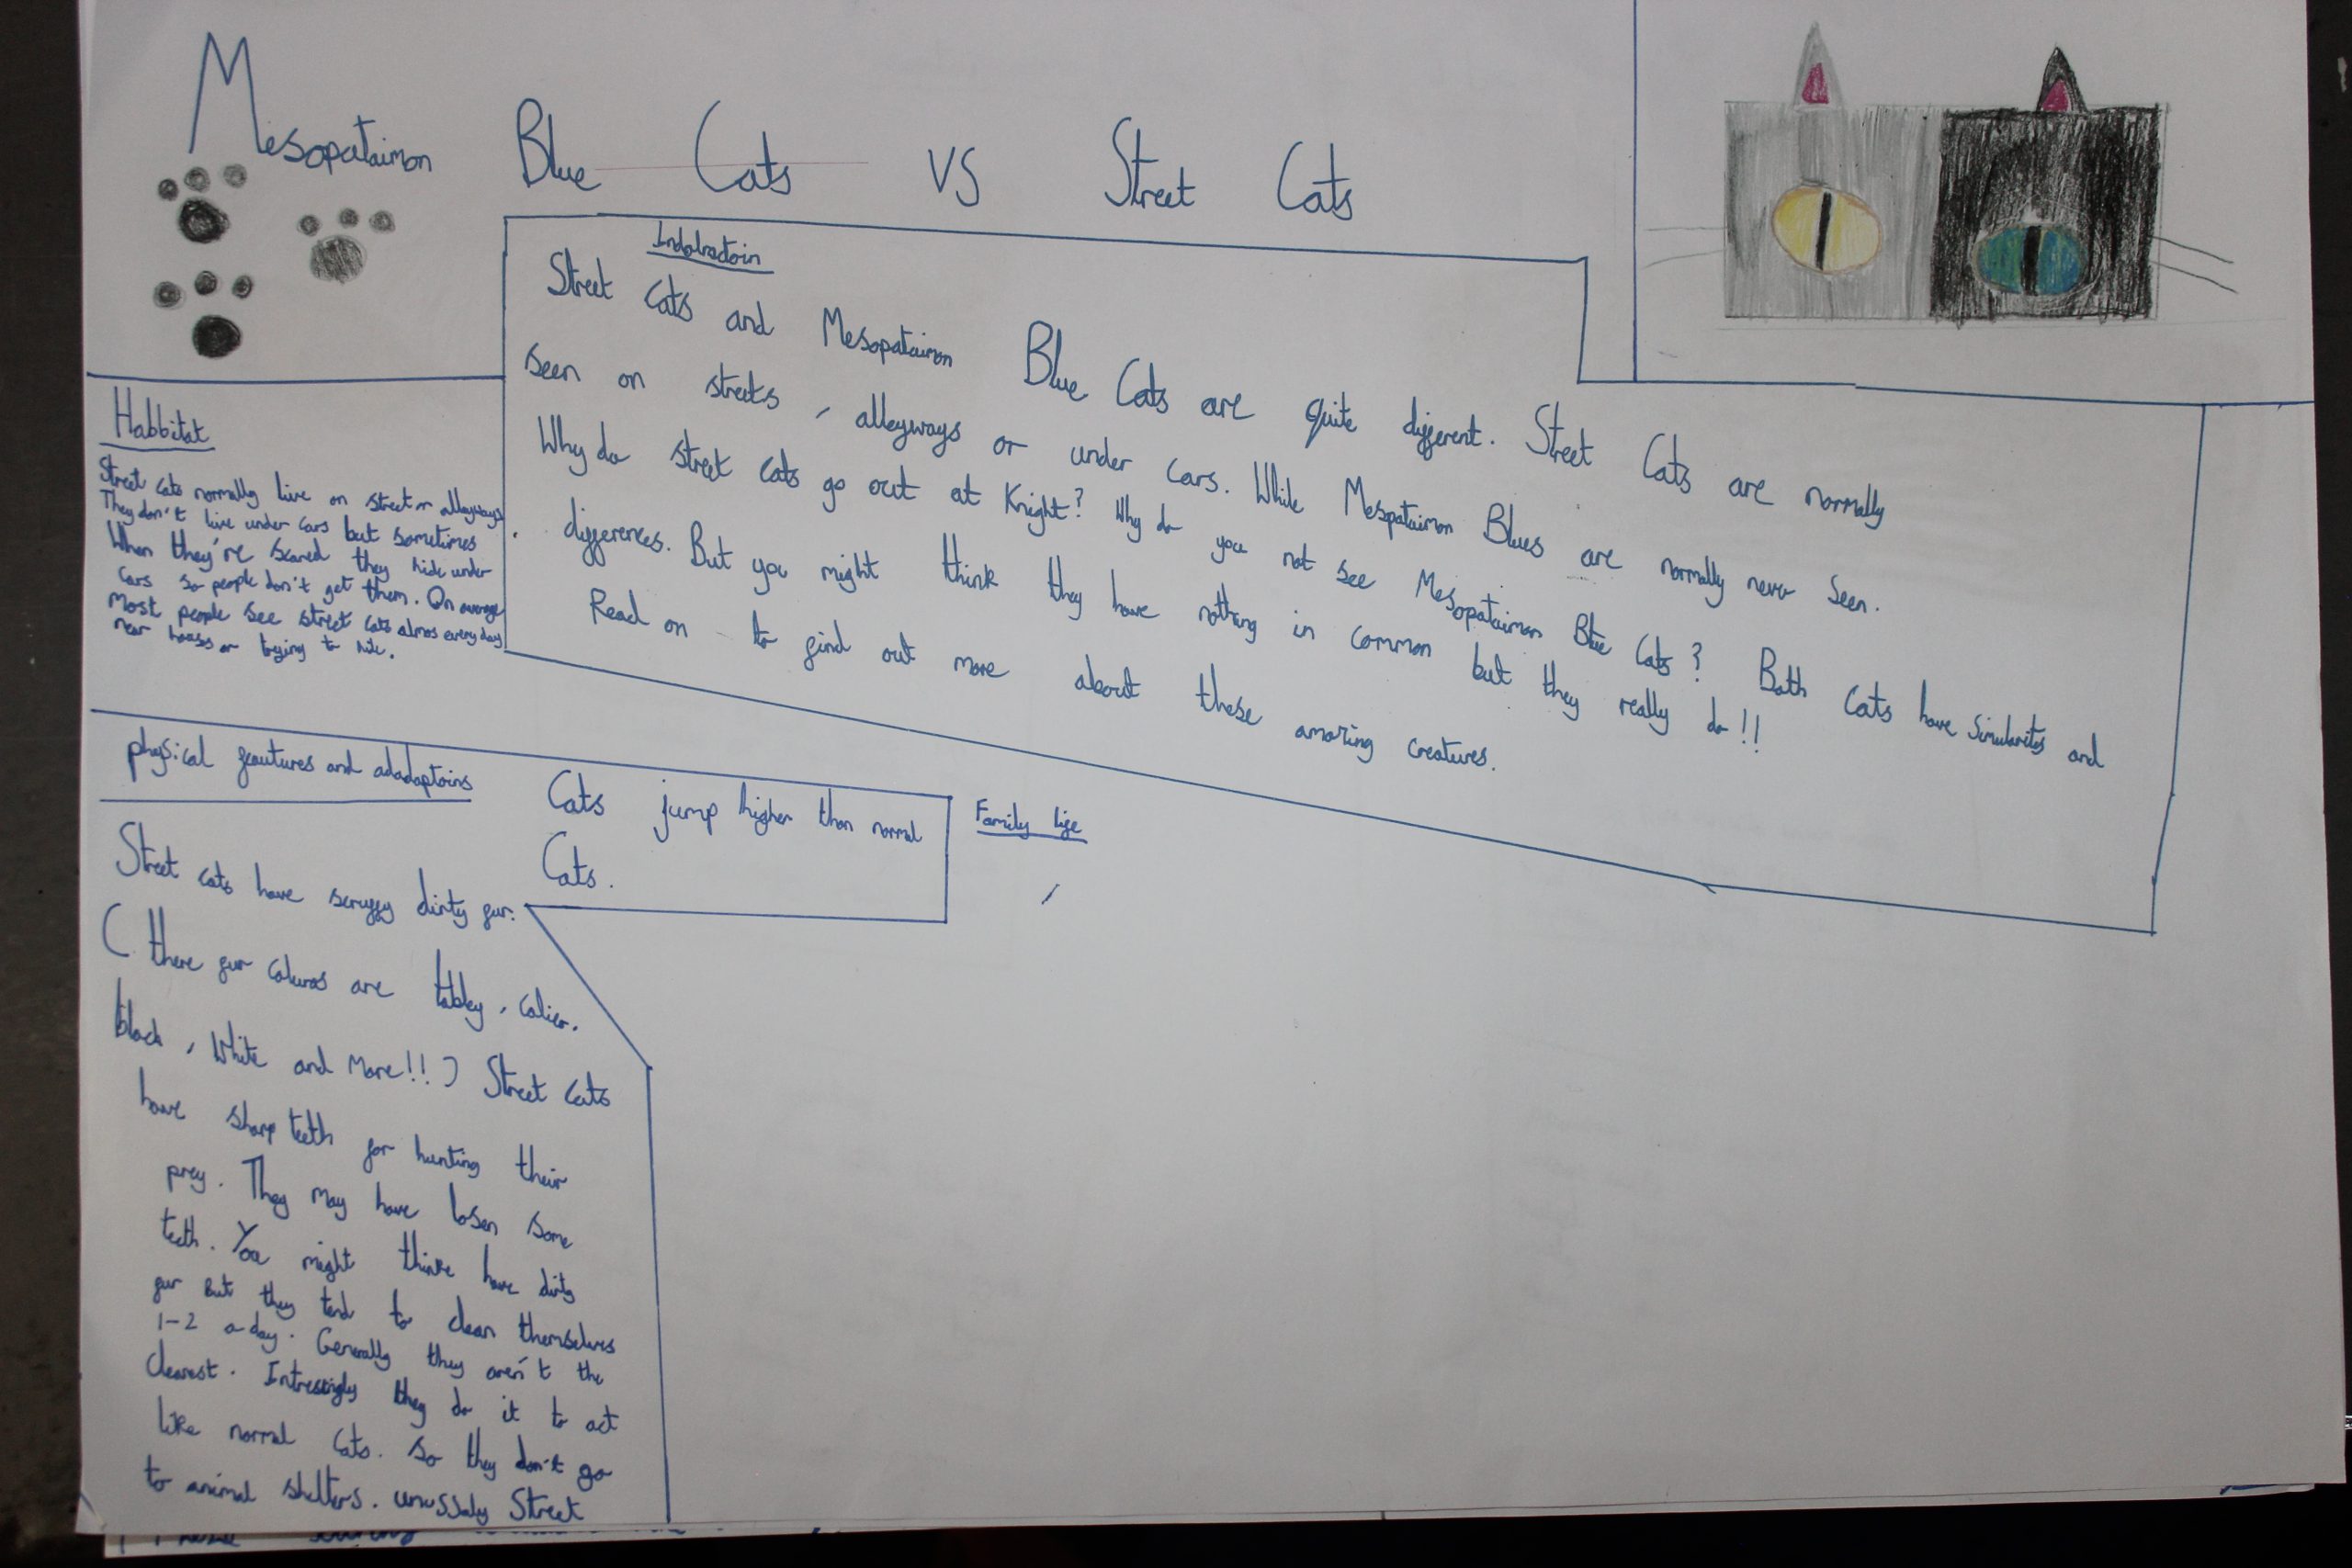 Mesopataimon Blue Cats VS Street Cats
Indolrodoin
Street Cats and Mesopataimon Blue Cats are quite different. Street Cats are normally
seen on streets, alleyways or under cars. While Mesopataimon Blues are normally never seen.
Why do street cats go out at Knight? Why do you not see Mesopataimon Blue Cats? Both Cats have Simularites and
differences. But you might think they have nothing in common but they really do!!
Read on to find out more about these amazing creatures.
Habbitat
Street cats normally live on street or alleyways
They don't live under cars but sometimes
When they're scared they hide under
cars so people don't get them. On average
most people see street cats almos every day
near houses or trying to hide.
physical feautures and adadaptoins
Street cats have scruffy dirty fur.
(there fur colures are tabbey, calico,
black, White and More!!) Street Cats
have sharp teeth for hunting their
prey. They may have losen some
teeth. You might think have dirty
fur But they tend to clean themselves
1-2 a day. Generally they aren't the
cleanest. Intrestigly they do it to act
like normal cats. So they don't go
to animal shelters. unussaly Street
Cats jump higher than normal
Cats.
Family life